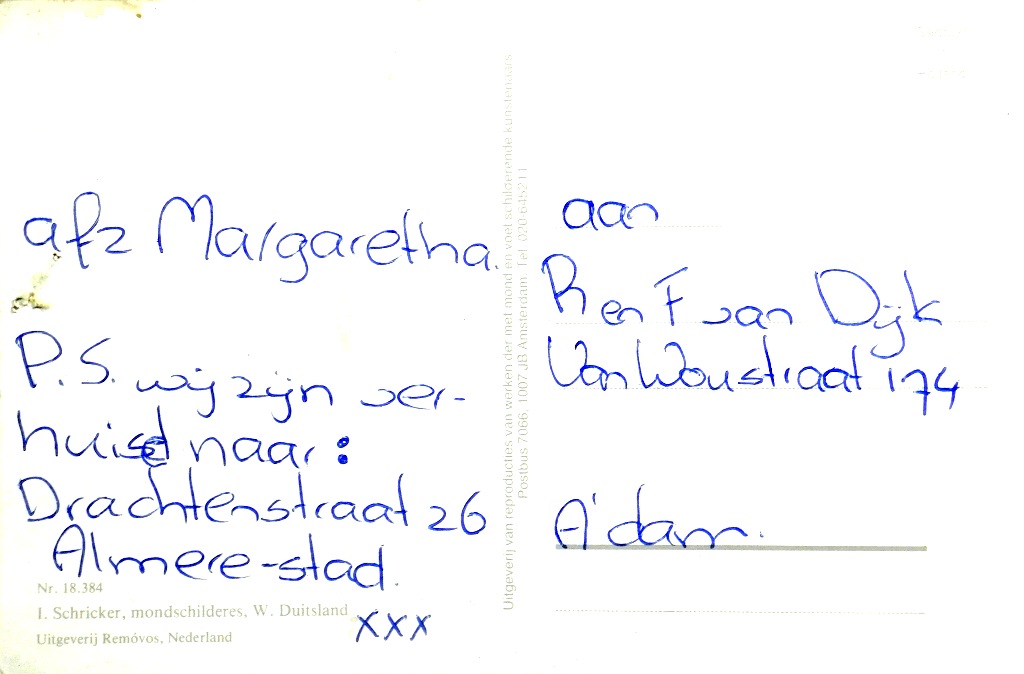 afz Margaretha.
P.S. wij zijn ver-
huisd naar:
Drachtenstraat 26
Almere-stad.
XXX
Nr. 18.384
I. Schricker, mondschilderes, W. Duitsland
Uitgeverij Remóvos, Nederland
Uitgeverij van reproducties van werken der met mond en voet schilderende kunstenaars
Postbus 7066, 1007 JB Amsterdam Tel. 020-645211
aan
R en F van Dijk
Van Woustraat 174
A'dam.